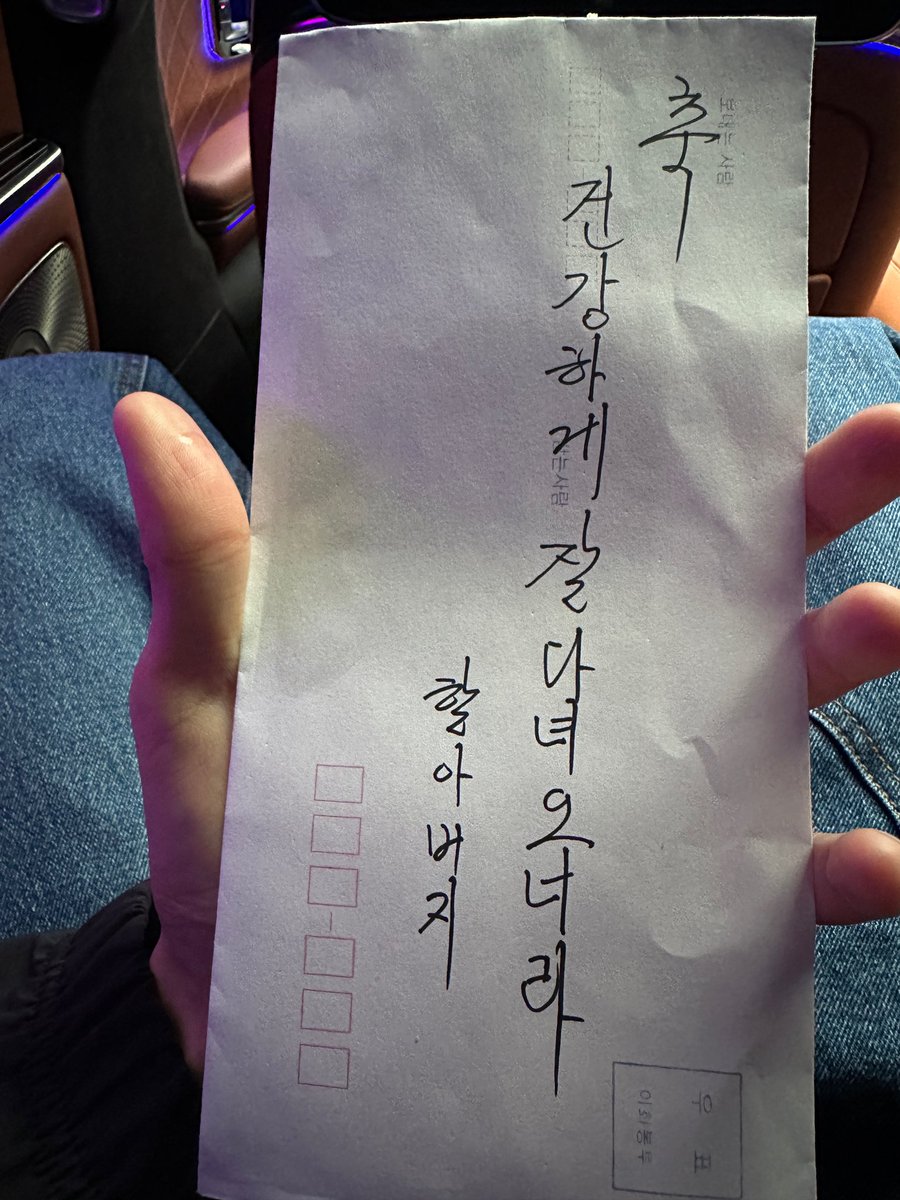 축
건강하게 잘 다녀오너라
할아버지
보내는 사람
받는사람
우 표